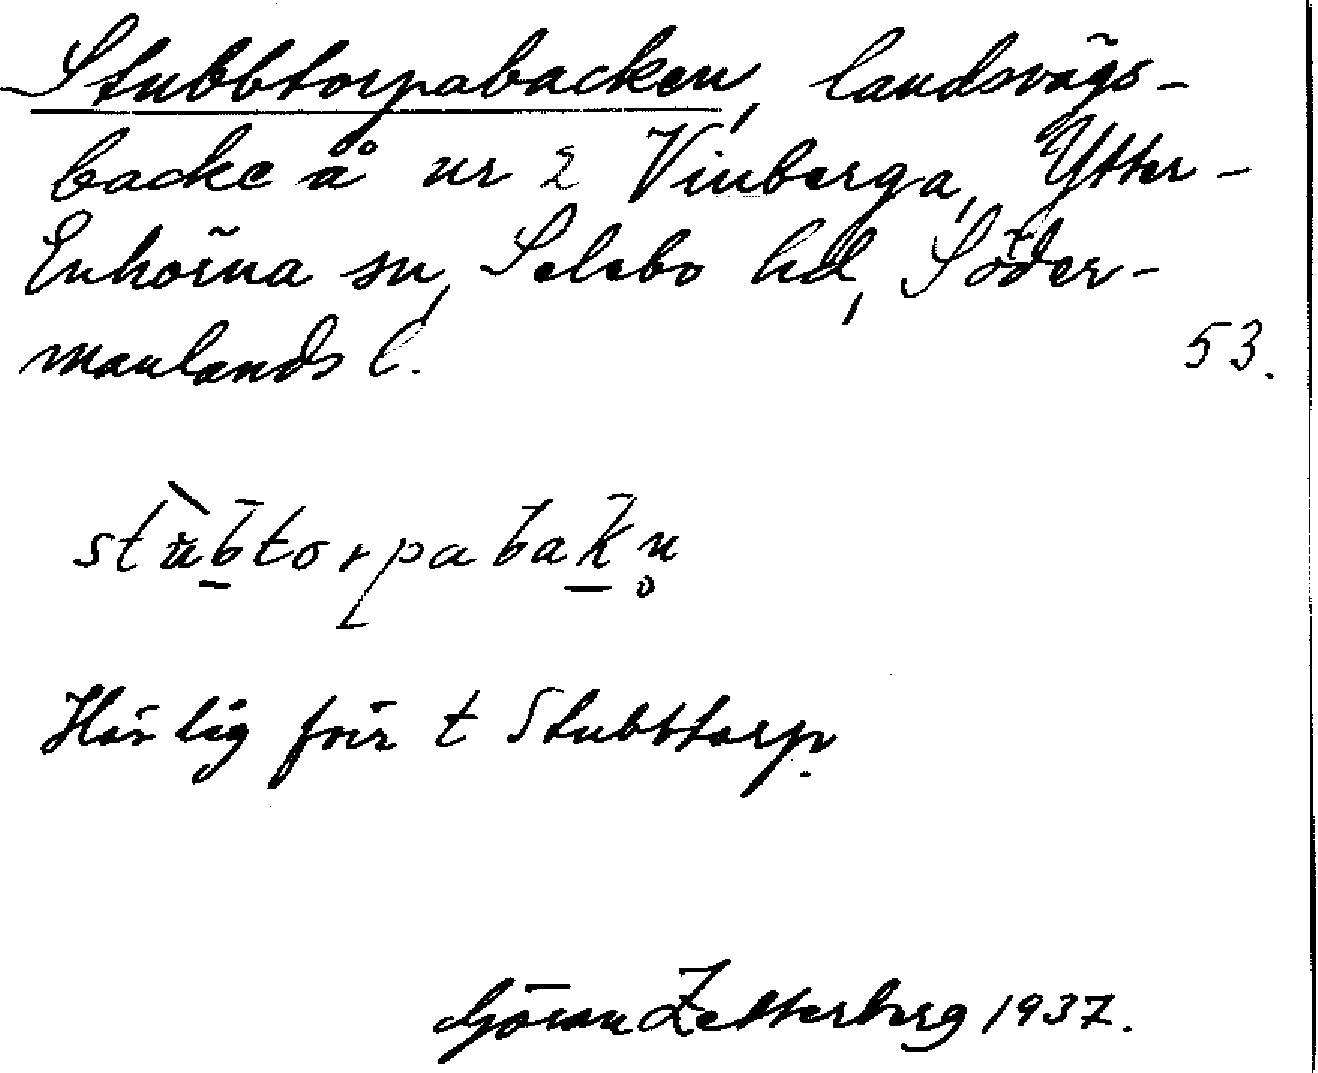 Stubbtorpabacken, landsvägs-
backe å nr 2 Vinberga, Ytter-
Enhörna sn, Selebo hd, Söder-
manlands l. 53.
stùbtorpabakn̥
Här låg förr t Stubbtorp.
Göran Zetterberg 1937.